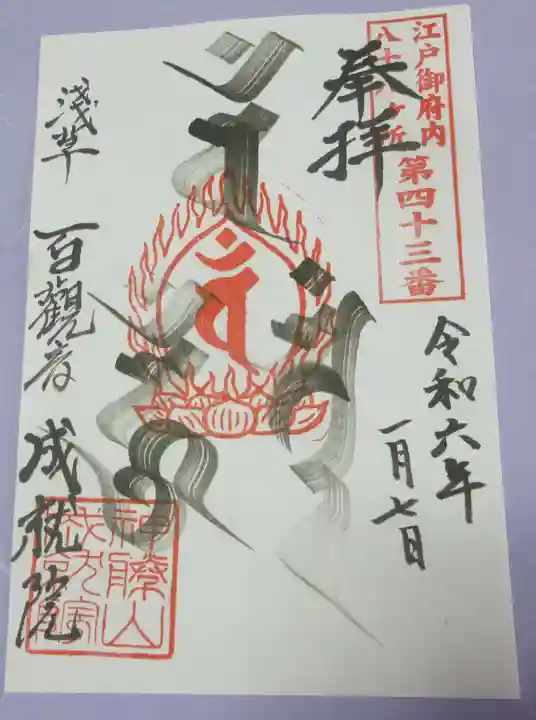 江戸御府内
八十八ヶ所
第四十三番
奉拝
令和六年
一月七日
浅草 百觀音 成就院
神勝山
成就院